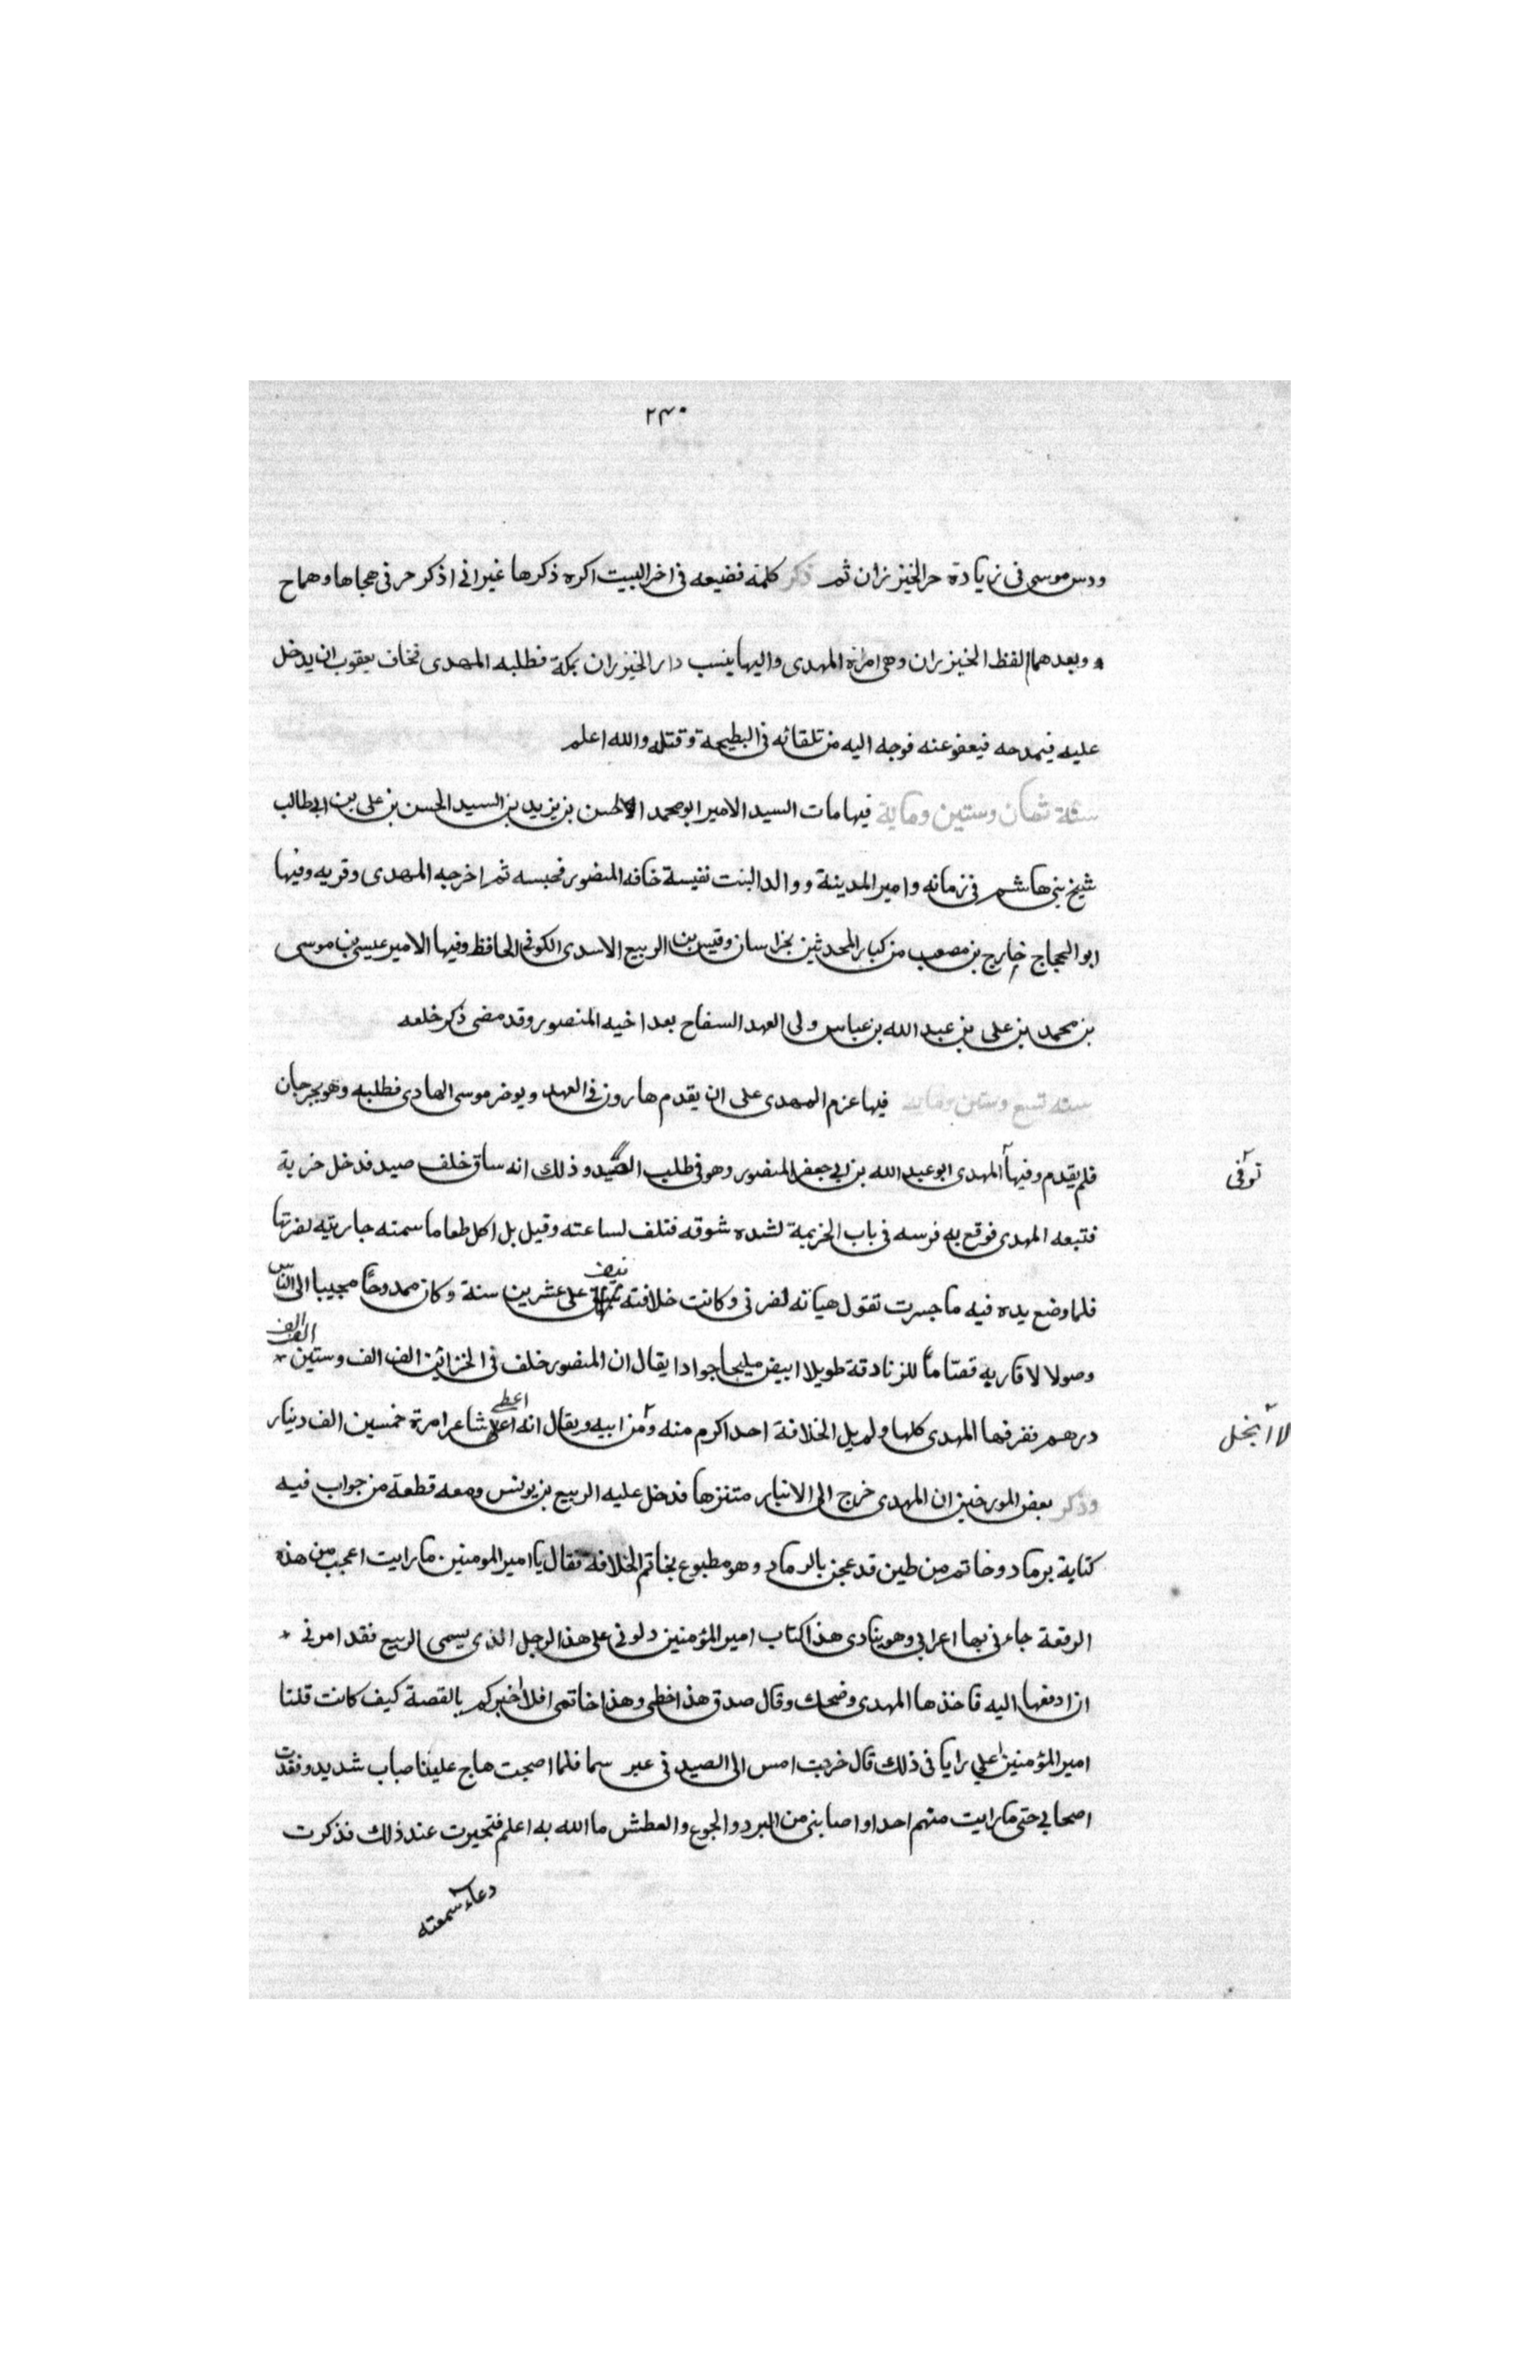 ٢٤٠
ودس موسى فى زيادة حر الخيزران ثم ذكر كلمة فضيعه فى اخر البيت اكره ذكرها غير انى اذكر حرفى هجاها وهما ح
وبعدهما لفظ الخيزران وهى امراة المهدى واليها ينسب دار الخيزران بمكة فطلبه المهدى فخاف يعقوب ان يدخل
عليه فيمدحه فيعفو عنه فوجه اليه من تلقائه فى البطيحة وقتله والله اعلم
سنة ثمان وستين وماية فيها مات السيد الامير ابو محمد الحسن بن يزيد بن السيد الحسن بن على بن ابى طالب
شيخ بنى هاشم فى زمانه وامير المدينة ووالد البنت نفيسة خافه المنصور فحبسه ثم اخرجه المهدى وقربه وفيها
ابو الحجاج خارج بن مصعب من كبار المحدثين بخراسان وقيس بن الربيع الاسدى الكوفى الحافظ وفيها الامير عيسى بن موسى
بن محمد بن على بن عبد الله بن عباس ولى العهد السفاح بعد اخيه المنصور وقد مضى ذكر خلعه
سنه تسع وستين وماية فيها عزم المهدى على ان يقدم هارون فى العهد ويوخر موسى الهادى فطلبه وهو بجرجان
فلم يقدم وفيها المهدى ابو عبد الله بن ابى جعفر المنصور وهو فى طلب الصيد وذلك انه ساق خلف صيد فدخل خربة
توفى
فتبعه المهدى فوقع به فرسه فى باب الخربة لشده شوقه فتلف لساعته وقيل بل اكل طعاما سمته جاريته لضرتها
فلما وضع يده فيه ما جسرت تقول هياته لضرتى وكانت خلافته نيف على عشرين سنة وكان ممدوحا مجيبا الى الناس
وصولا لاقاربه قصاما للزنادقة طويلا ابيض مليحا جوادا يقال ان المنصور خلف فى الخزائن الف الف وستين الف الف
درهم ففرقها المهدى كلها ولم يل الخلافة احد اكرم منه ومن ابيه ويقال انه اعطى شاعرا مرة خمسين الف دينار
لا ابخل
وذكر بعض المورخين ان المهدى خرج الى الانبار متنزها فدخل عليه الربيع بن يونس ومعه قطعة من جواب فيه
كتابة برماد وخاتم من طين قد عجن بالرماد وهو مطبوع بخاتم الخلافة فقال يا امير المومنين ما رايت اعجب من هذه
الرقعة جاءنى بها اعرابى وهو ينادى هذا كتاب امير المؤمنين دلونى على هذا الرجل الذى يسمى الربيع فقد امرنى
ان ادفعها اليه فاخذها المهدى وضحك وقال صدق هذا خطى وهذا خاتمى افلا اخبركم بالقصة كيف كانت قلنا
امير المؤمنين اعلى رايا فى ذلك قال خرجت امس الى الصيد فى عبر سما فلما اصبحت هاج علينا ضباب شديد وفقدت
اصحابى حتى ما رايت منهم احدا واصابنى من البرد والجوع والعطش ما الله به اعلم فتحيرت عند ذلك فذكرت
دعاء سمعته